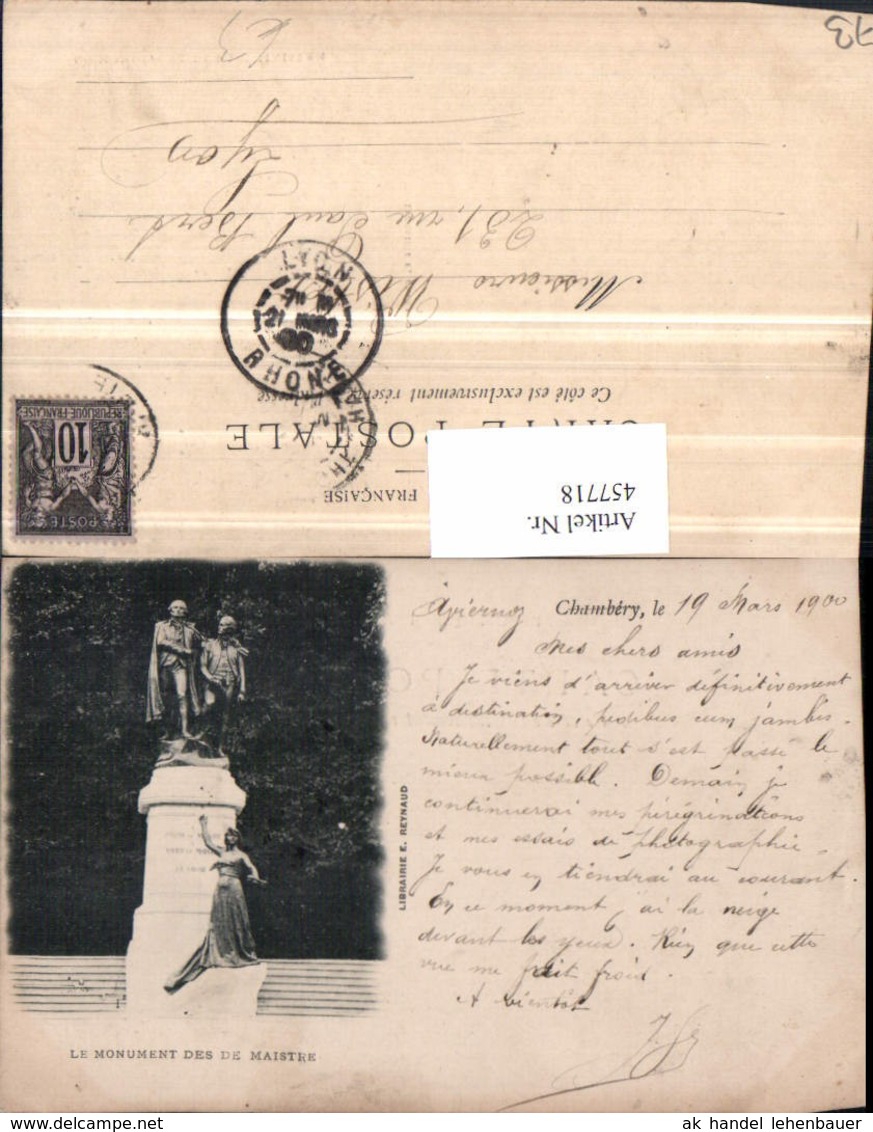 73
E.3
Lyon
231, rue Paul Bert
Messieurs
LYON
21 MARS
00
RHONE
Ce côté est exclusivement réservé à l'adresse
CARTE POSTALE
FRANÇAISE
REPUBLIQUE FRANÇAISE
10
POSTE
Artikel Nr.
457718
Chambéry, le 19 Mars 1900
Mes chers amis
Je viens d'arriver définitivement
à destination, pedibus cum jambis.
Naturellement tout s'est passé le
mieux possible. Demain je
continuerai mes pérégrinations
et mes essais de photographie.
Je vous en tiendrai au courant.
En ce moment j'ai la neige
devant les yeux. Rien que cette
vue me fait froid.
A bientôt
LIBRAIRIE E. REYNAUD
LE MONUMENT DES DE MAISTRE
ak handel lehenbauer